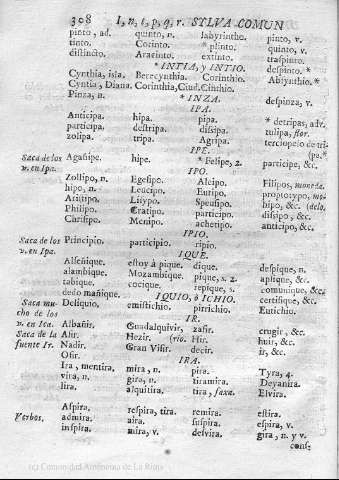 308 I, n, t, p, q, r. SYLVA COMUN
pinto, ad. quinto, n. labyrintho. pinto, v.
tinto. Corinto. * plinto. quinto, v.
distincto. Aracinto. extinto. traspinto.
* INTIA, y INTIO. despinto. *
Cynthia, isla. Berecynthia. Corinthio. Abynthio. *
Cyntia, Diana. Corinthia, Ciud. Cinthio.
Pinza, n. * INZA. despinza, v.
IPA.
Anticipa. hipa. pipa. * detripas, adv.
participa. destripa. disipa. tulipa, flor.
zolipa. tripa. Agripa. terciopelo de tri-
IPE. (pa.*
Saca de los Agasipe. hipe. * Felipe, 2. participe, &c.
v. en Ipa.
IPO.
Zollipo, n. Egesipo. Alcipo. Filipos, moneda.
hipo, n. Leucipo. Euripo. prototypo, mo-
Aristipo. Lisypo. Speusipo. hipo, &c. (delo.
Philipo. Cratipo. participo. disipo, &c.
Chrisipo. Menipo. achetipo. anticipo, &c.
IPIO.
Saca de los Principio. participio. ripio.
v. en Ipa.
IQUE.
Alfeñique. estoy à pique. dique. despique, n.
alambique. Mozambique. pique, s. 2. aplique, &c.
tabique. cocique. repique, s. comunique, &c.
dedo mañique. IQUIO, ò ICHIO. certifique, &c.
Saca mu- Deliquio. emistichio. pirrichio. Eutichio.
cho de los
v. en Ica. IR.
Albañir. Guadalquivir. zafir. crugir, &c.
Saca de la Asir. Hezir. (rio. Hir. huir, &c.
fuente Ir. Nadir. Gran Visir. decir. ir, &c.
Ofir.
IRA.
Ira, mentira. mira, n. pira. Tyra, 4.
vira, n. gira, n. tiramira. Deyanira.
lira. alquitira. tira, faxa. Elvira.
Aspira. respira, tira. remira. estira.
Verbos. admira. aira. suspira. espira, v.
inspira. mira, v. desvira. gira, n. y v.
cons-
(c) Comunidad Autónoma de La Rioja